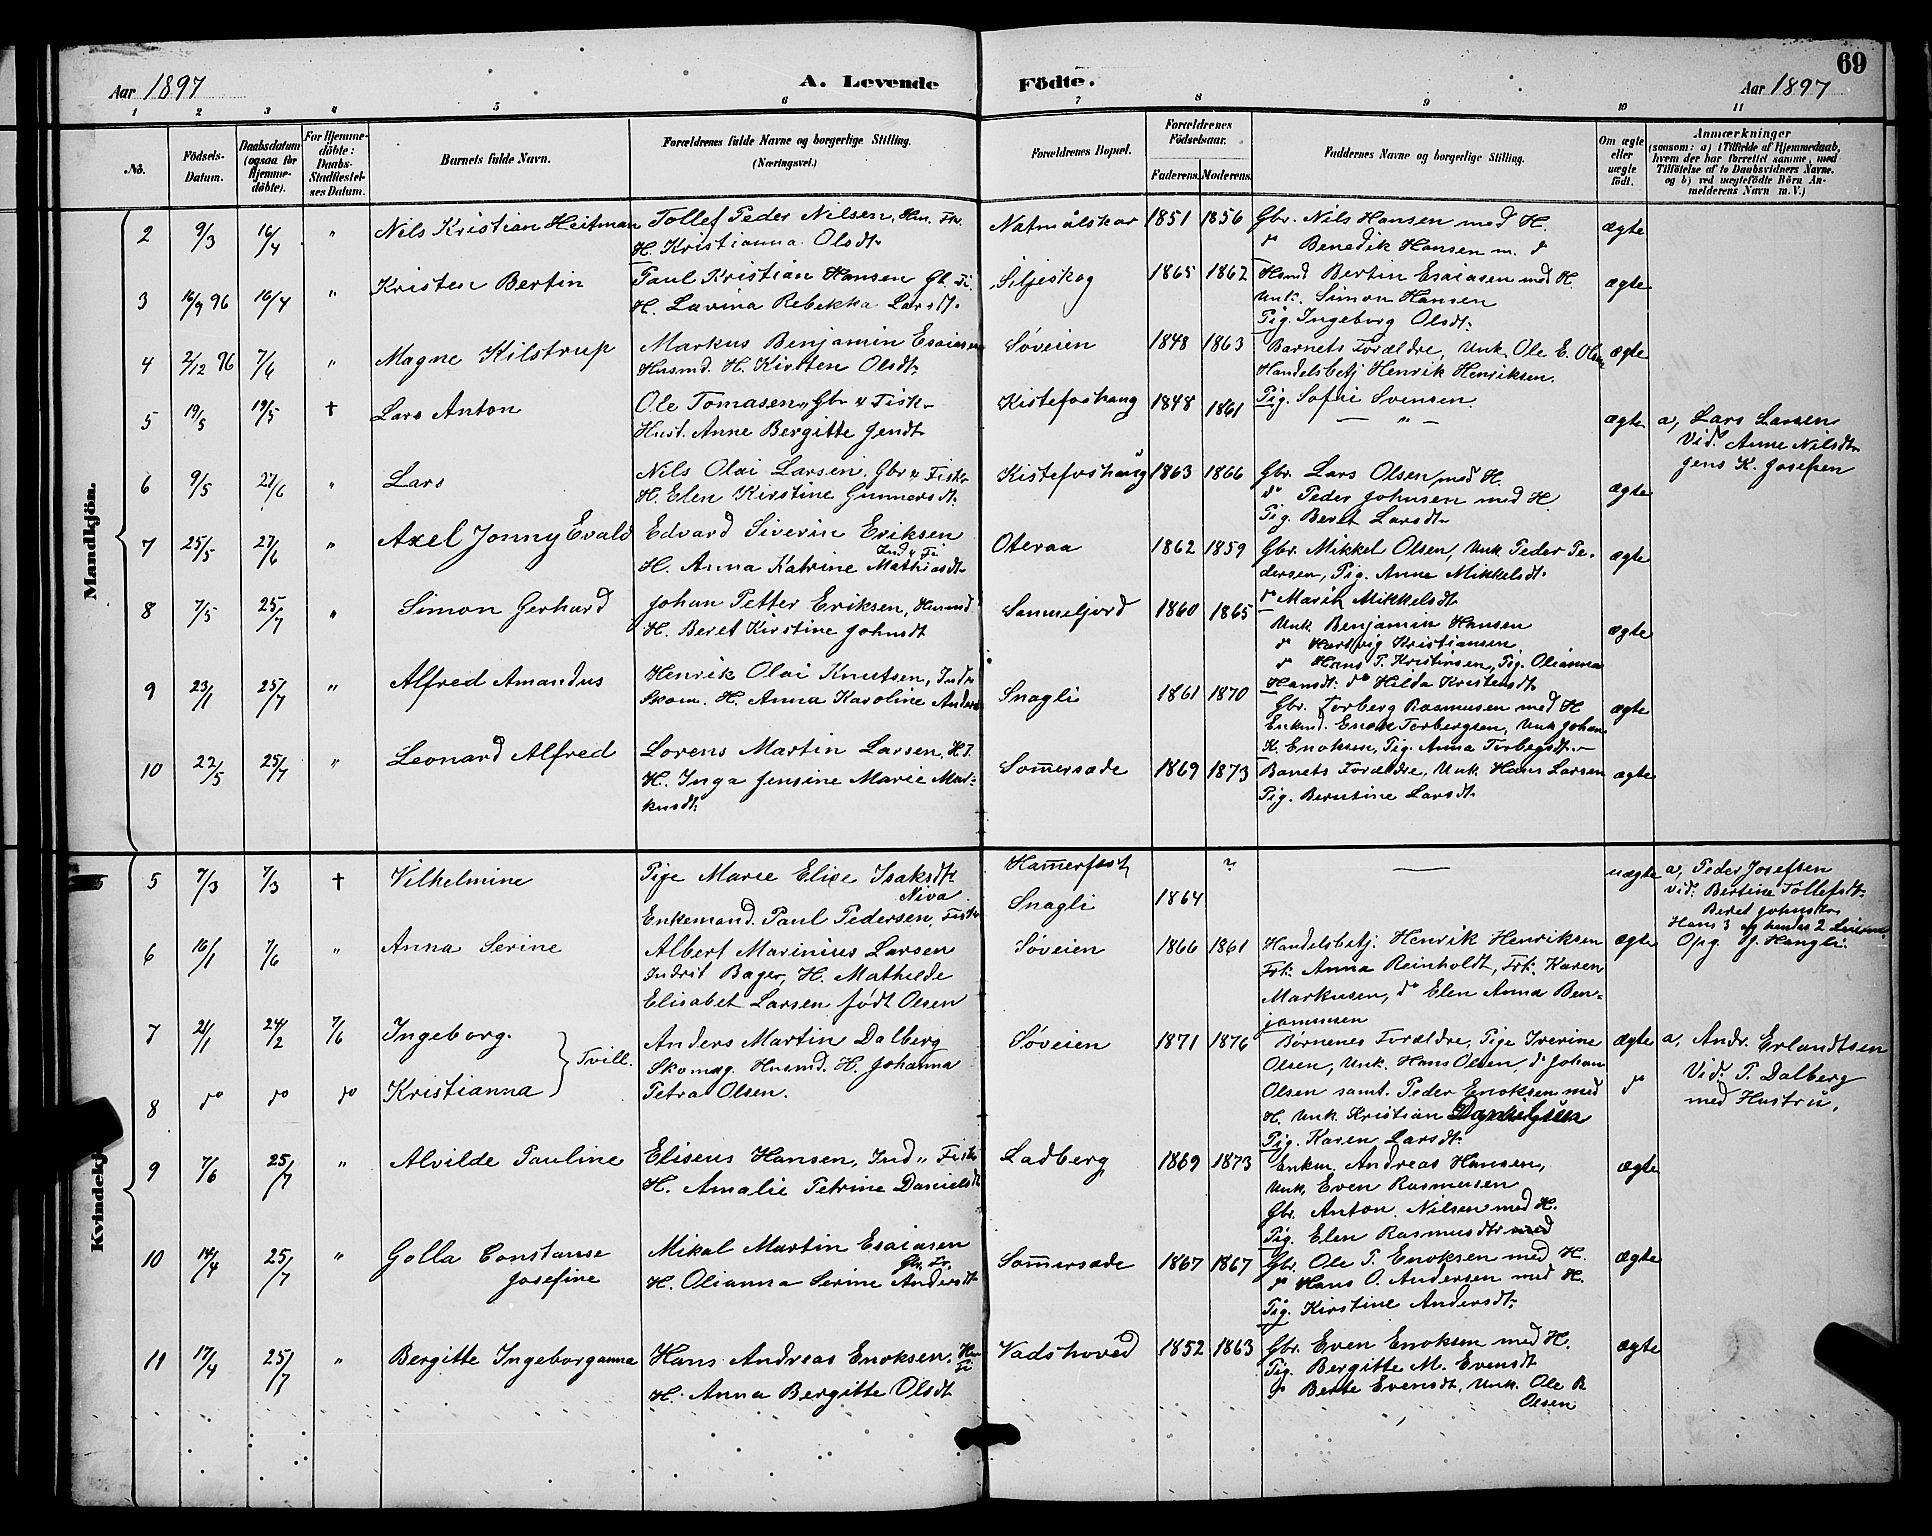 69
Aar 1897
A. Levende Födte.
Aar 1897
1 2 3 4 5 6 7 8 9 10 11
No.
Födsels-Datum.
Daabsdatum (ogsaa for Hjemme-döbte).
For Hjemme-döbte: Daabs-Stadfæstel-ses Datum.
Barnets fulde Navn.
Forældrenes fulde Navne og borgerlige Stilling. (Næringsvei.)
Forældrenes Bopæl.
Forældrenes Födselsaar.
Faderens. Moderens.
Faddernes Navne og borgerlige Stilling.
Om ægte eller uægte født.
Anmærkninger
(saasom: a) i Tilfælde af Hjemmedaab, hvem der har forrettet samme, med Tilföielse af to Daabsvidners Navne. og b) ved uægtefödte Börn An-melderens Navn m. V.)
Mandkjön.
2 9/3 16/4 " Nils Kristian Heitman Tollef Peder Nilsen, Hm. Fr. Natmålskar 1851 1856 Gbr. Nils Hansen med H. ægte
H. Kristianna Olsdt. do Benedik Hansen m. do
3 16/9 96 16/4 " Kristen Bertin Paul Kristian Hansen Gb. Fi. Siljeskog 1865 1862 Hsmd Bertin Esaiasen med H. ægte
H. Lavina Rebekka Larsdt. Unk. Simon Hansen
Pig. Ingeborg Olsdt.
4 2/12 96 7/6 " Magne Kilstrup Markus Benjamin Esaiasen Søveien 1848 1863 Barnets Forældre, Unk. Ole E. Olsen ægte
Husmd. H. Kirsten Olsdt. Handelsbetj Henrik Henriksen.
Pig. Sofie Svensen.
5 19/5 19/5 † Lars Anton Ole Tomasen, Gbr " Fisk. Kistefoshaug 1848 1861 " ægte a, Lars Larsen
Hust. Anne Bergitte Jensdt. Vid. Anne Nilsdt.
Jens K. Josefsen
6 9/5 27/6 " Lars Nils Olai Larsen, Gbr " Fisk. Kistefoshaug 1863 1866 Gbr. Lars Olsen med H. ægte
H. Elen Kirstine Gunnersdt. do Peder Johnsen med H.
Pig. Beret Larsdt.
7 25/5 27/6 " Axel Jonny Evald Edvard Siverin Eriksen Oteraa 1862 1859 Gbr. Mikkel Olsen, Unk Peder Pe- ægte
Ind " Fi
H. Anna Katrine Mathiasdt. dersen, Pig. Anne Mikkelsdt.
do Marit Mikkelsdt.
8 7/5 25/7 " Simon Gerhard Johan Petter Eriksen, Husmd Sammelfjord 1860 1865 Unk Benjamin Hansen ægte
H. Beret Kirstine Johnsdt do Hartvig Kristiansen
do Hans P. Kristinsen, Pig. Olianna
Hansdt. do Hilda Kristensdt.
9 23/1 25/7 " Alfred Amandus Henrik Olai Knutsen, Indr Snagli 1861 1870 Gbr. Torberg Rasmusen med H ægte
Skom. H. Anna Karoline Anders Enkmd. Enok Torbergsen, Unk Johan
K. Enoksen, Pig. Anna Torbegsdt.
10 22/5 25/7 " Leonard Alfred Lorens Martin Larsen, Som̄ersæde 1869 1873 Banets Forældre, Unk. Hans Larsen ægte
H. Inga Jensine Marie Mar- Pig. Berntine Larsdt.
kusdt.
Kvindekj
5 7/3 7/3 † Vilhelmine Pige Marie Elise Isaksdt. Ham̄erfest ? — uægte a, Peder Josefsen
Niva vid. Bertine Tollefsdt.
Enkemand. Paul Pedersen, Fisk Snagli 1864 Beret Johnsdt.
Hans 3 og hendes 2
6 16/1 7/6 " Anna Serine Albert Marinius Larsen Søveien 1866 1861 Handelsbetj. Henrik Henriksen ægte Opg. Hengli.
Indrst Bager, H. Mathilde Frk. Anna Reinholdt, Frk. Karen
Elisabet Larsen født Olsen Markusen, do Elen Anna Ben-
jaminsen
7 21/1 24/2 7/6 Ingeborg. } Tvill. Anders Martin Dalberg Søveien 1871 1876 Børnenes Forældre, Pige Iverine ægte a, Andr. Erlandtsen
Skomag. Husmd. H. Johanna Olsen, Unk. Hans Olsen, do Johan Vid. P. Dalberg
8 do do do Kristianna Petra Olsen. Olsen samt. Peder Enoksen med do med Hustru.
H. Unk. Kristian Danielsen
Pig. Karen Larsdt.
9 7/6 25/7 " Alvilde Pauline Eliseus Hansen, Ind " Fisk Ladberg 1869 1873 Enkm. Andreas Hansen, ægte
H. Amalie Petrine Danielsdt Unk. Even Rasmusen
Gbr. Anton Nilsen med H.
Pig. Elen Rasmusdt. med
10 14/4 25/7 " Golla Constanse Mikal Martin Esaiasen Som̄ersæde 1867 1867 Gbr. Ole P. Enoksen med H. ægte
Josefine Gbr. Fr.
H. Olianna Serine Andersdt do Hans O. Andersen med H.
Pig. Kirstine Andersdt.
11 17/4 25/7 " Bergitte Ingeborganna Hans Andreas Enoksen, Hm Fi Vadshoved 1852 1863 Gbr. Even Enoksen med H. ægte
H. Anna Bergitte Olsdt Pig. Bergitte M. Evensdt
do Berte Evensdt, Unk. Ole R
Olsen